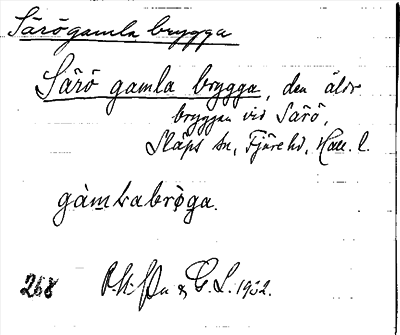 Särö gamla brygga
Särö gamla brygga, den äldr
bryggan vid Särö,
Släps sn, Fjäre hd, Hall. l.
gàmlabròga.
268 & G. L. 1932.